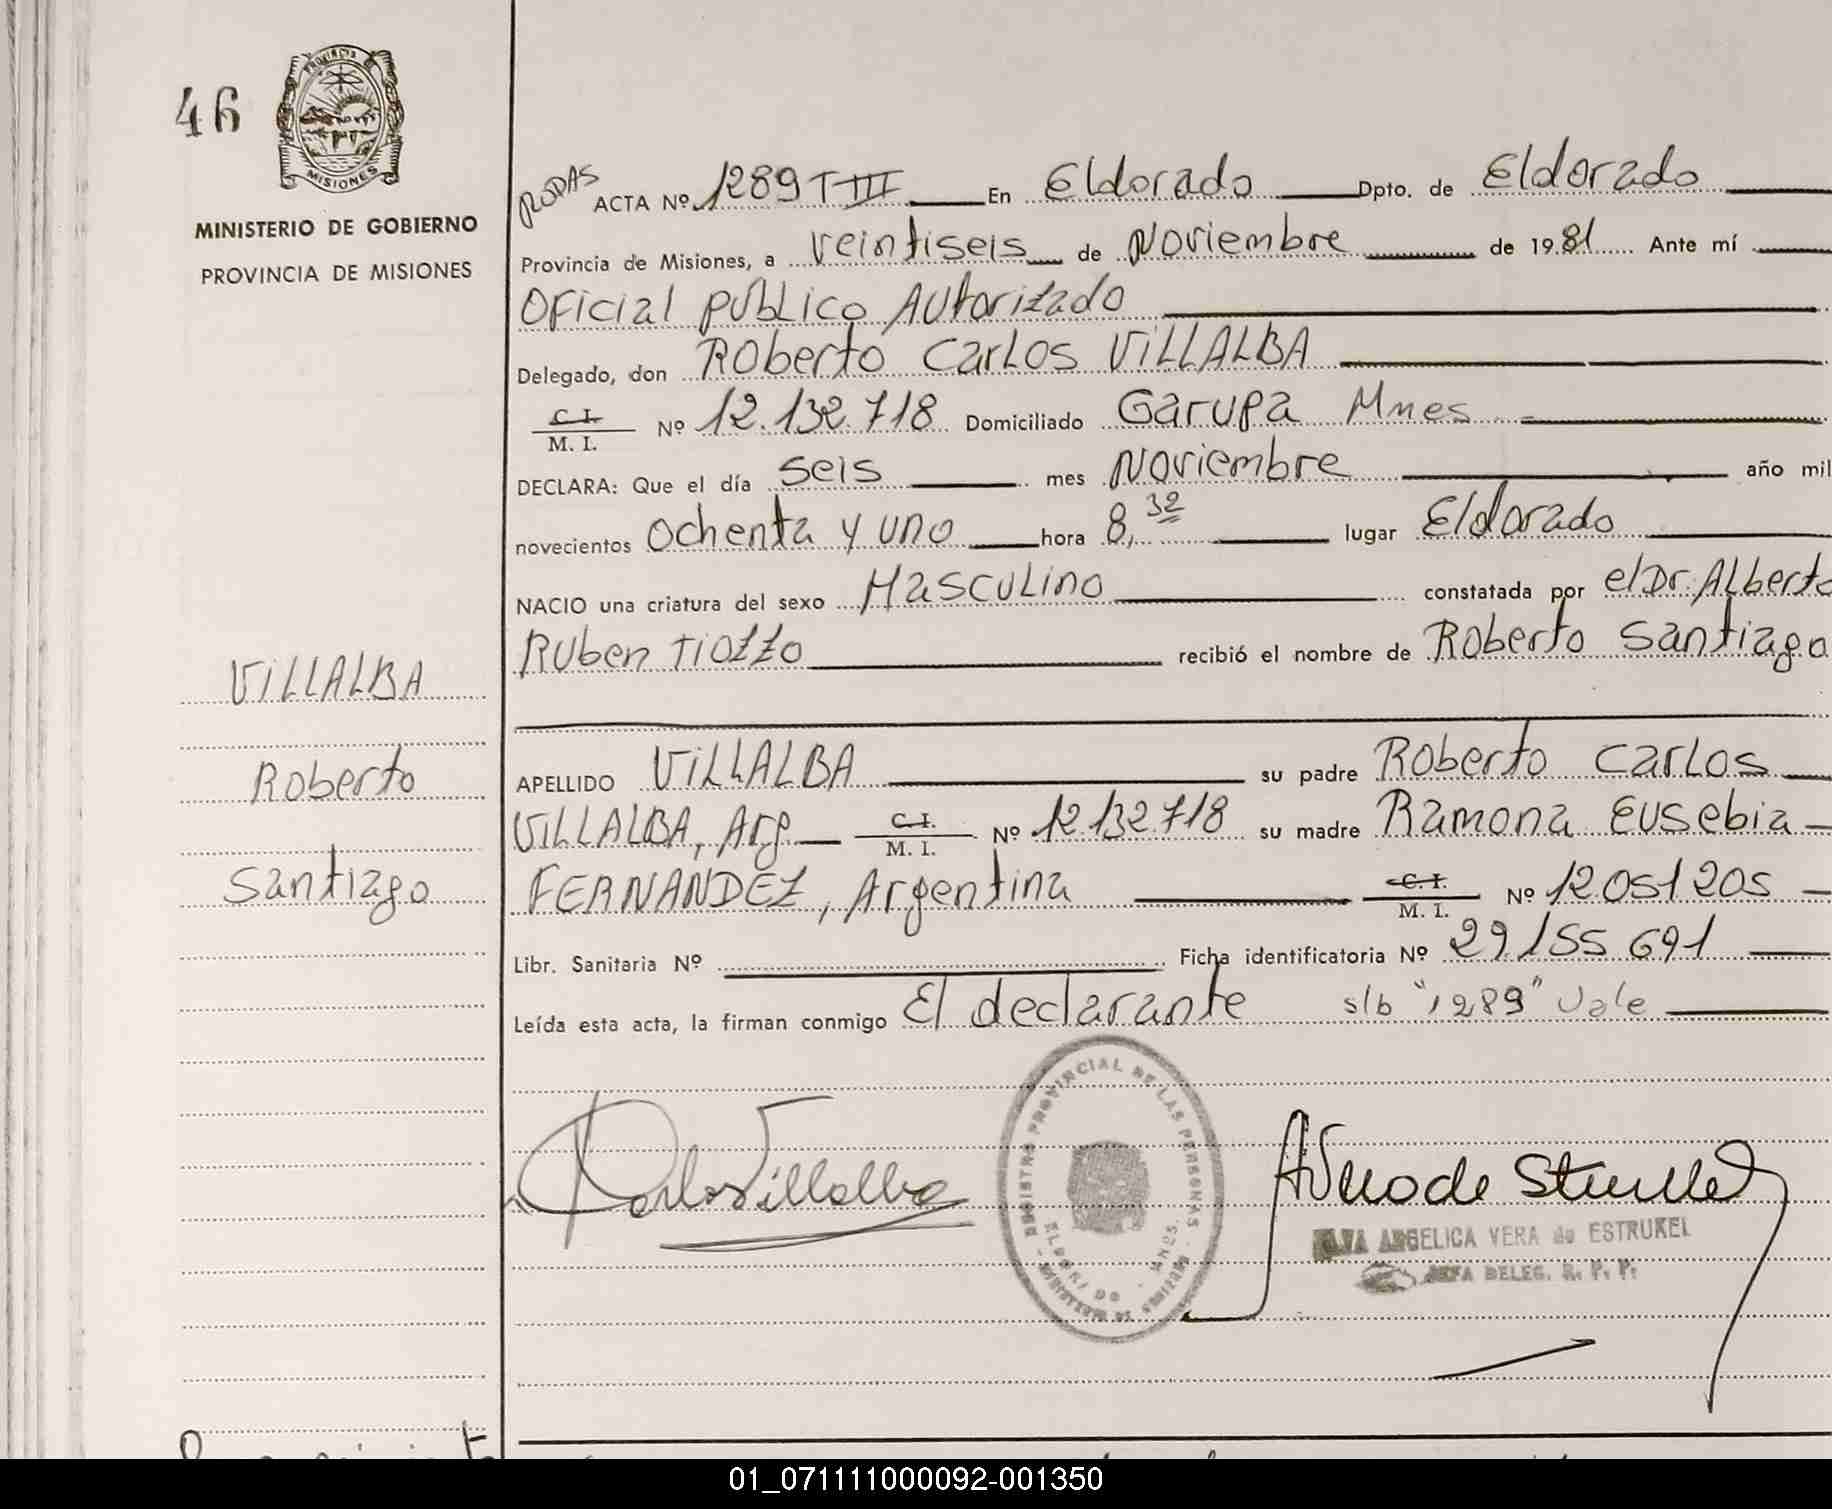 46
PROVINCIA DE
MISIONES
MINISTERIO DE GOBIERNO
PROVINCIA DE MISIONES
VILLALBA
Roberto
Santiago
RODAS ACTA Nº 1289 T III En Eldorado Dpto. de Eldorado
Provincia de Misiones, a veintiseis de Noviembre de 1981 Ante mí
Oficial Publico Autorizado
Delegado, don Roberto Carlos VILLALBA
C. I.
M. I. Nº 12.132.718 Domiciliado Garupa Mnes
DECLARA: Que el día seis mes Noviembre año mil
novecientos ochenta y uno hora 8,32 lugar Eldorado
NACIO una criatura del sexo Masculino constatada por el Dr. Alberto
Ruben Tiozzo recibió el nombre de Roberto Santiago
APELLIDO VILLALBA su padre Roberto Carlos
VILLALBA, Arg. C. I. M. I. Nº 12.132.718 su madre Ramona Eusebia
FERNANDEZ, Argentina C. I. M. I. Nº 12051205
Libr. Sanitaria Nº Ficha identificatoria Nº 29.155.691
Leída esta acta, la firman conmigo El declarante s/b "1289" Vale
REGISTRO PROVINCIAL DE LAS PERSONAS
ELDORADO - MNES.
Carlos Villalba
ANGELICA VERA de ESTRUKEL
JEFA DELEG. R. P. P.
01_071111000092-001350